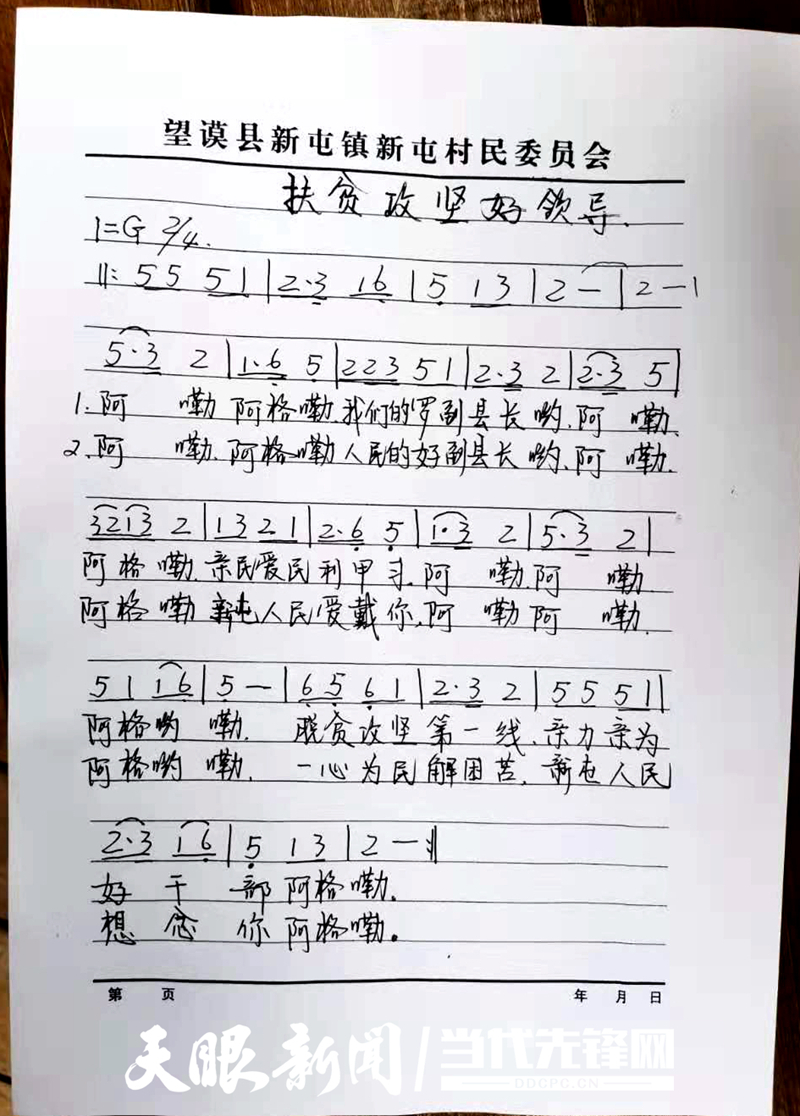 望谟县新屯镇新屯村民委员会
扶贫攻坚好领导.
1=G 2/4.
‖: 5 5 5 1 | 2·3 1 6 | 5 1 3 | 2 — | 2 — |
5·3 2 | 1·6 5 | 2 2 3 5 1 | 2·3 2 | 2·3 5 |
1、阿 嘞 阿格嘞.我们的罗副县长哟.阿 嘞.
2、阿 嘞.阿格嘞人民的好副县长哟、阿 嘞.
3 2 1 3 2 | 1 3 2 1 | 2·6 5 | 1·3 2 | 5·3 2 |
阿格嘞.亲民爱民利甲寸.阿 嘞.阿 嘞.
阿格嘞 新屯人民爱戴你.阿 嘞阿 嘞.
5 1 1 6 | 5 — | 6 5 6 1 | 2·3 2 | 5 5 5 1 |
阿格哟 嘞. 脱贫攻坚第一线.亲力亲为
阿格哟 嘞. 一心为民解困苦.新屯人民
2·3 1 6 | 5 1 3 | 2 — :‖
好干部阿格嘞.
想念你阿格嘞。
第 页 年 月 日
天眼新闻/当代先锋网
DDCPC.CN